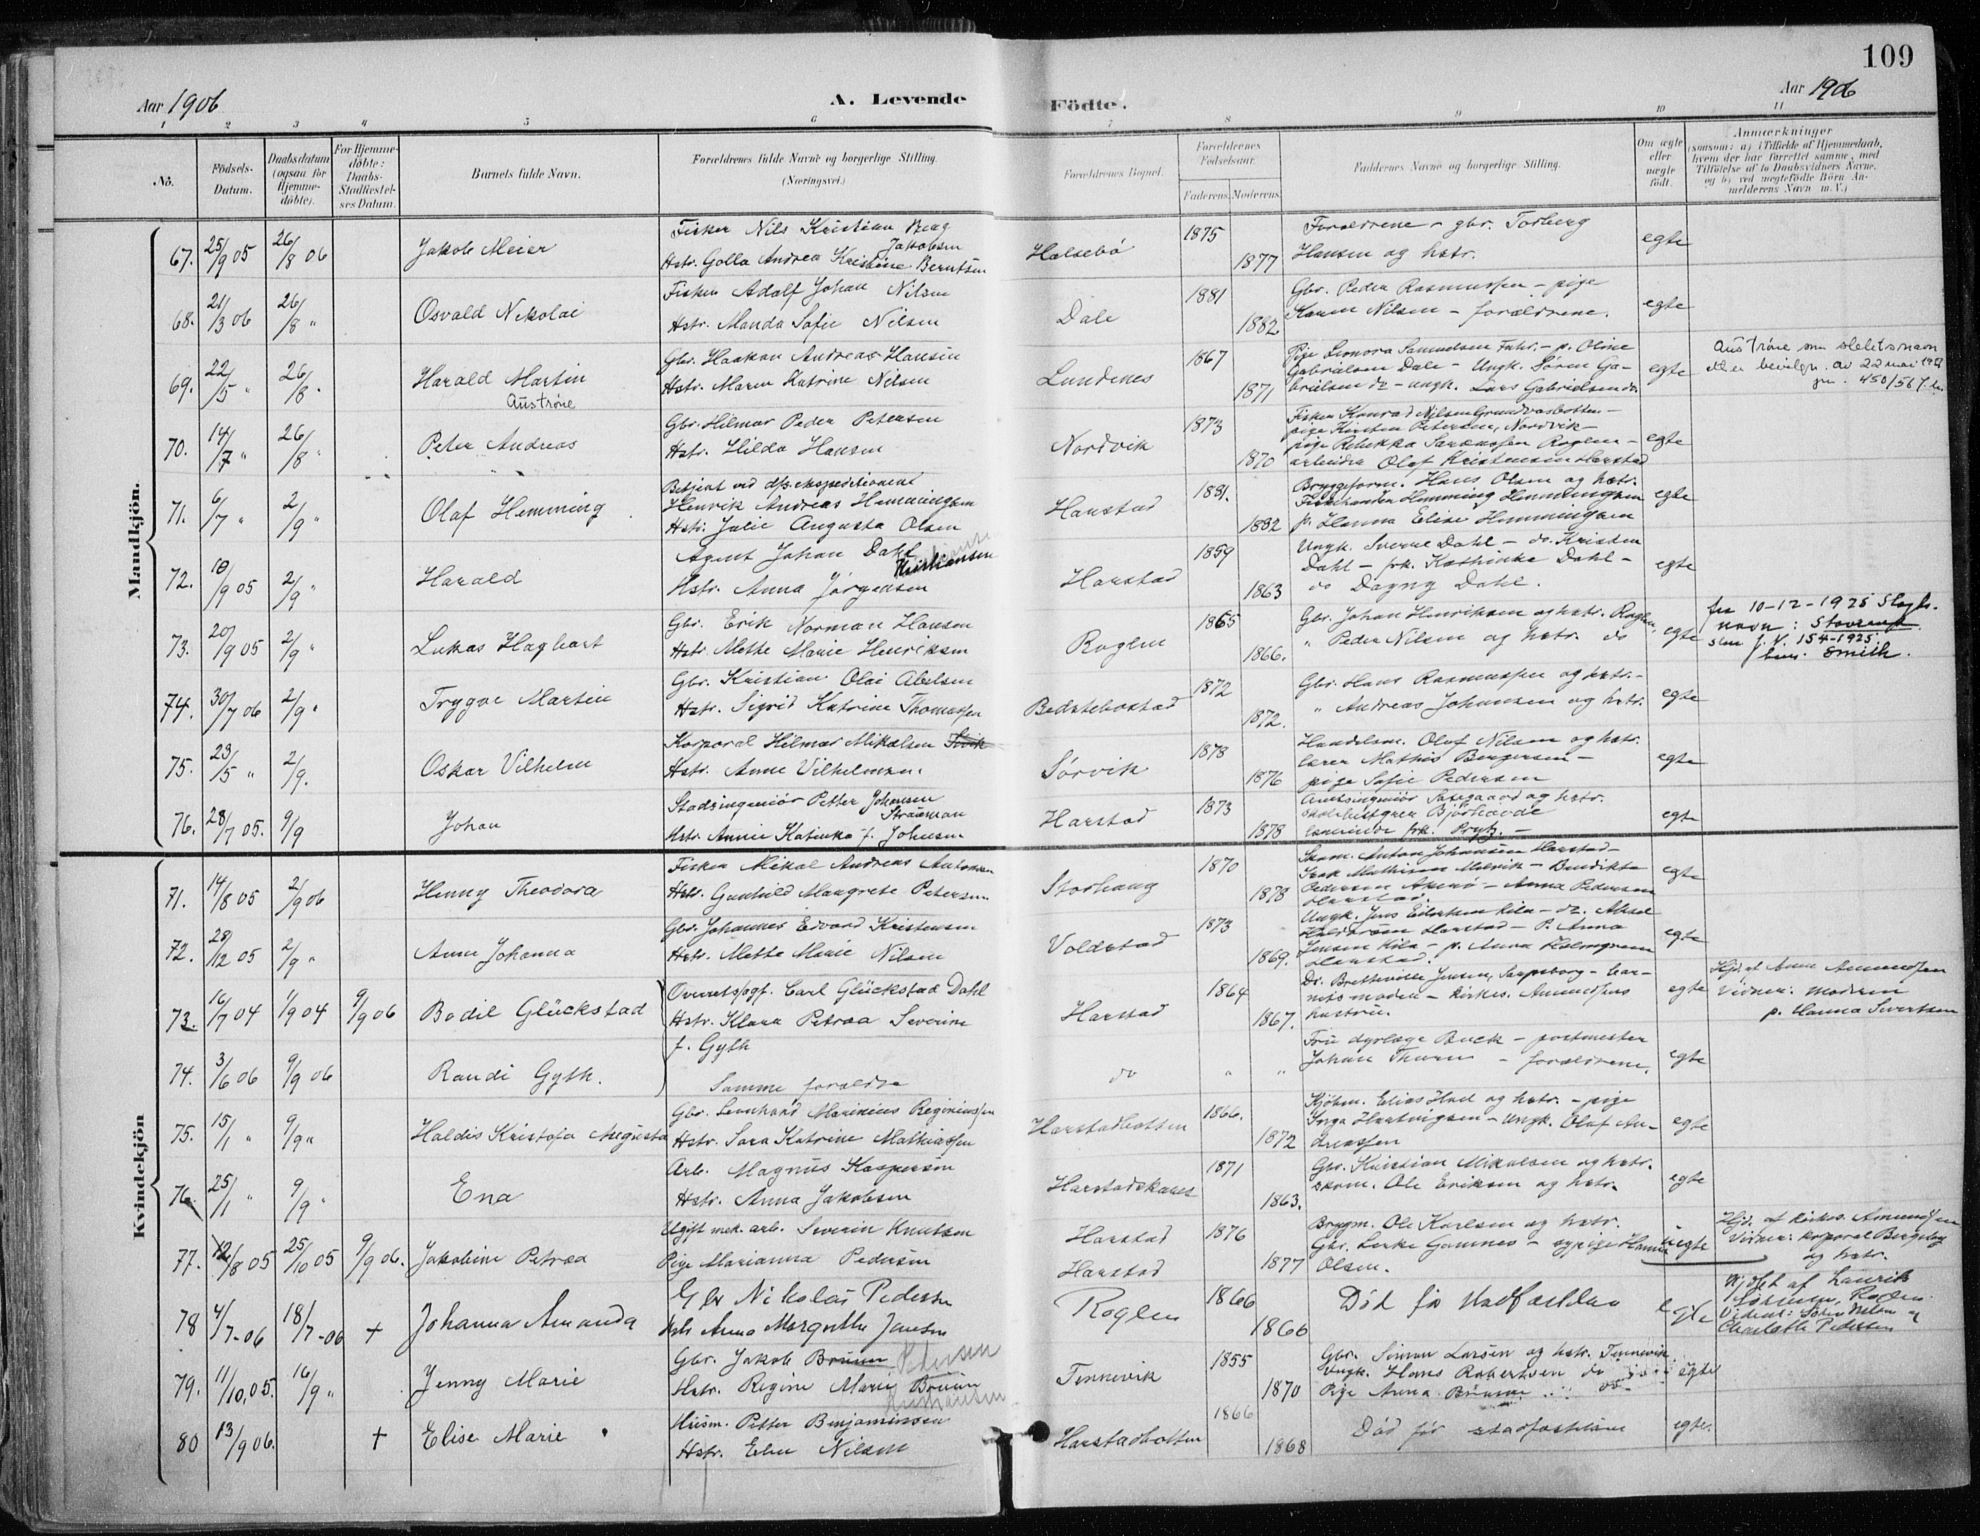 109
Aar 1906
A. Levende Födte.
Aar 1906
1 2 3 4 5 6 7 8 9 10 11
No.
Födsels-Datum.
Daabsdatum (ogsaa for Hjemme-döbte).
For Hjemme-döbte: Daabs-Stadfæstel-ses Datum.
Barnets fulde Navn.
Forældrenes fulde Navne og borgerlige Stilling.
(Næringsvei.)
Forældrenes Bopæl.
Forældrenes Födselsaar.
Faderens. Moderens.
Faddernes Navne og borgerlige Stilling.
Om ægte eller uægte født.
Anmærkninger
(saasom: a) i Tilfælde af Hjemmedaab, hvem der har forrettet samme, med Tilföielse af to Daabsvidners Navne, og b) ved uægtefödte Börn An-melderens Navn m. V.)
Mandkjön.
67. 25/9 05 26/8 06 Jakob Meier
Fisker Nils Kristian Berg Jakobsen
Hstr. Golla Andrea Kristine Berntsen
Halsebø 1875 1877
Forældrene – gbr. Torberg
Hansen og hstr.
egte
68. 21/3 06 26/8 " Osvald Nikolai
Fisker Adolf Johan Nilsen
Hstr. Manda Sofie Nilsen
Dale 1881 1882
Gbr. Peder Rasmussen – pige
Karen Nilsen – forældrene.
egte
69. 22/5 " 26/8 " Harald Martin
Austrøne
Gbr. Haakon Andreas Hansen
Hstr. Maren Katrine Nilsen
Lundenes 1867 1871
Pige Leonora Samuelsen – p. Oline
Gabrielsen Dale – Ungk. Søren Ga-
brielsen do – ungk. Lars Gabrielsen do
egte
Austrøne som slektsnavn
bevilgn. av 22 mai
450/567
70. 14/7 " 26/8 " Peter Andreas
Gbr. Hilmar Peder Petersen
Hstr. Hilda Hansen
Nordvik 1873 1870
Fisker Konrad Nilsen Grundvasbotten –
pige Kirsten Petersen, Nordvik –
pige Rebekka Roglen –
arbeider Olaf Kristensen Harstad
egte
71. 6/7 " 2/9 " Olaf Hemming
Betjent ved
Henrik Andreas Hemmingsen
Hstr. Julie Augusta Olsen
Harstad 1881. 1882
Bryggeform. Hans Olsen og hstr.
Hemming Hemmingsen
p. Hanna Elise Hemmingsen
egte
72. 10/9 05 2/9 " Harald
Agent Johan Dahl Kristiansen
Hstr. Anna Jørgensen
Harstad 1859 1863
Ungk. Sverre Dahl – do. Kristen
Dahl – frk. Kathinka Dahl –
do Dagny Dahl.
egte
73. 20/9 05 2/9 " Lukas Hagbart
Gbr. Erik Norman Hansen
Hstr. Mette Marie Henriksen
Roglen 1865 1866.
Gbr. Johan Henriksen og hstr. Roglen
" Peder Nilsen og hstr. do
egte
fra 10-12-1925 Slegts-
navn:
154-1925.
Smith.
74. 30/7 06 2/9 " Trygve Martin
Gbr. Kristian Olai Abelsen
Hstr. Sigrid Katrine Thomassen
Bedstebostad 1872 1872.
Gbr. Hans Rasmussen og hstr. –
" Andreas Johansen og hstr.
egte
75. 23/5 " 2/9. Oskar Vilhelm
Korporal Hilmar Mikalsen
Hstr. Anne Vilhelmsen.
Sørvik 1878 1876
Handelsm. Olaf Nilsen og hstr.
lærer Mathis Bergersen –
pige Sofie Pedersen
egte
76. 28/7 05. 9/9 Johan
Stadsingeniør Petter Johnsen
Hstr. Annie Katinka f. Johnsen
Harstad 1873 1878
Amtsingeniør og hstr.
egte
Kvindekjön
71. 14/8 05 2/9 06 Henny Theodora
Fisker Mikal Andreas Antonsen
Hstr. Gunhild Margrete Petersen
Storhaug 1870 1878
Skom. Anton Johansen Harstad –
Isak Mathisen Melvik – Bendikte
Pedersen – Anna Pedersen
Harstad.
egte
72. 28/12 05 2/9 " Anna Johanna
Gbr. Johannes Edvard Kristensen
Hstr. Mette Marie Nilsen
Voldstad 1873 1869.
Ungk. Jens Kila – do. Aksel
Harstad – P. Anna
Jensen Kila – p. Anna Holmgren
Harstad.
egte
73. 16/7 04 1/9 04 9/9 06 Bodil Glückstad
Overretssagf. Carl Glückstad Dahl
Hstr. Klara Petrea Severine
f. Gyth
Harstad 1864 1867.
Dr. Jensen, Sarpsborg – bar-
nets moder – kirkes. Amundsens
hustru.
egte
Hjd. af Anna Amundsen
Vidner: moderen
p. Hanna Sivertsen
74. 3/6 06 9/9 06 Randi Gyth.
Samme forældre
do " "
Fru dyrlæge Buck – postmester
Johan Thurn – forældrene.
egte
75. 15/1 " 9/9 " Haldis Kristofa Augusta
Gbr. Leonhard Marinius Reginiussen
Hstr. Sara Katrine Mathiassen
Harstadbotten 1866. 1872
Kjøbm. Elias Hall og hstr. – pige
Inga Hartvigsen – Ungk. Olaf An-
dreassen
egte
76. 25/1 " 9/9 " Ena
Arb. Magnus Kaspersen
Hstr. Anna Jakobsen
Harstadskaret 1871 1863.
Gbr. Kristian Mikalsen og hstr.
skom. Ole Eriksen og hstr.
egte
77. 12/8 05 25/10 05 9/9 06. Jakobine Petrea
Ugift mek. arb. Severin Knutsen
Pige Marianna Pedersen
Harstad 1876
Harstad 1877
Brygm. Ole Karlsen og hstr.
Gbr. Lerke Gamnes – sypige Hanna
Olsen.
uegte
Hjd. af kirkes. Amundsen
Vidner: korporal Bergeby
og hstr.
78 4/7-06 18/7-06 + Johanna Amanda
Gbr Nikolai Pedersen
Hstr Anna Margrethe Jensen
Roglen 1866 1866
Død før stadfæstelse
egte
Hjdøbt af Laurits
Roglen.
Vidner: Søren Nilsen og
Charlotte Pedersen
79. 11/10.05. 16/9 " Jenny Marie
Gbr. Jakob Bruun Pedersen
Hstr. Regine Marie Bruun
Kristiansen
Tennevik 1855 1870
Gbr. Simon Larsen og hstr. Tennevik
Ungk. Hans Robertsen do
Pige Anna Bruun do
egte
80 13/9 06. + Elise Marie
Husm. Petter Benjaminsen
Hstr. Elen Nilsen
Harstadbotten 1866 1868
Død før stadfæstelse
egte.